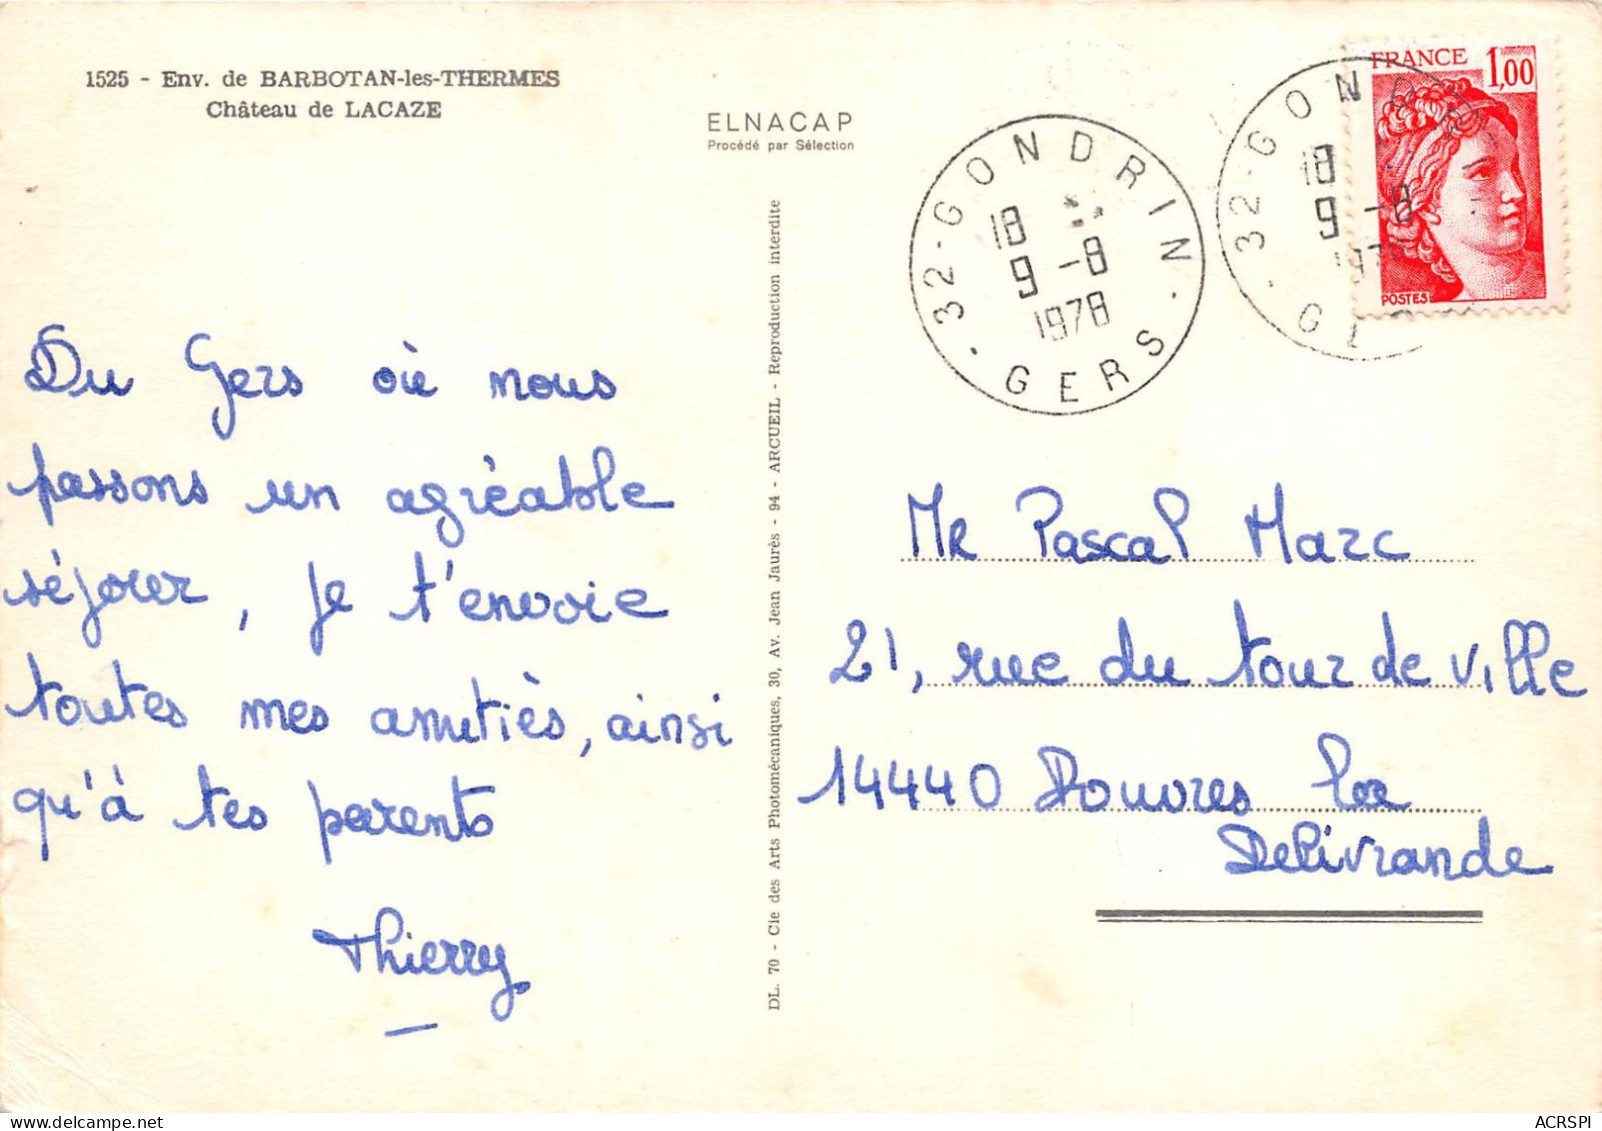 1525 - Env. de BARBOTAN-les-THERMES
Château de LACAZE
ELNACAP
Procédé par Sélection
32-GONDRIN
18
9 -8
1978
GERS
32-GON
18
9 -8
1978
FRANCE 1,00
POSTES
Du Gers où nous
passons un agréable
séjorer, je t'envoie
toutes mes amitiès, ainsi
qu'à tes parents
Thierry
DL. 70 - Cie des Arts Photomécaniques, 30, Av. Jean Jaurès - 94 - ARCUEIL - Reproduction interdite
MR Pascal Marc
21, rue du tour de ville
14440 Douvres la
Delivrande
ACRSPI